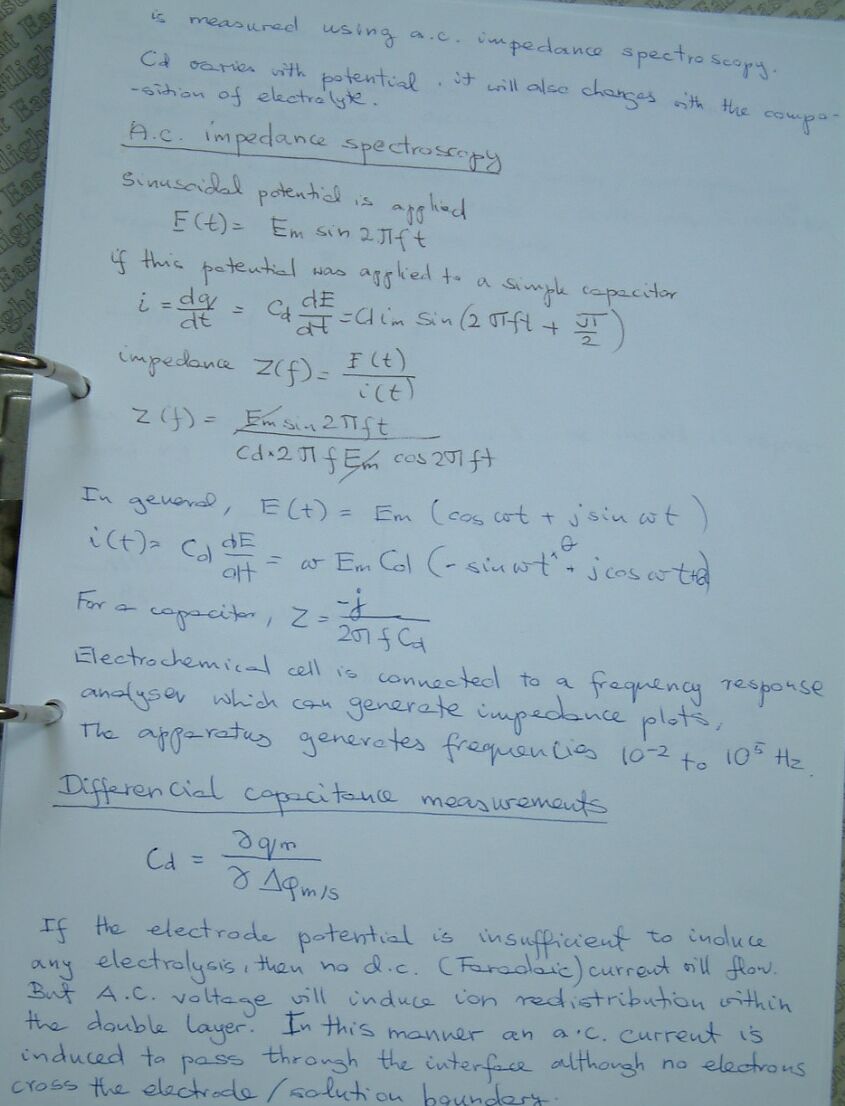 is measured using a.c. impedance spectroscopy.
Cd varies with potential. it will also changes with the compo-
-sition of electrolyte.
A.c. impedance spectroscopy
Sinusoidal potential is applied
E(t) = Em sin 2πft
if this potential was applied to a simple capacitor
i = dq/dt = Cd dE/dt = Cd im sin(2πft + π/2)
impedance Z(f) = E(t)/i(t)
Z(f) = Em sin 2πft / Cd × 2πf Em cos 2πft
In general, E(t) = Em (cos ωt + j sin ωt)
i(t) = Cd dE/dt = ω Em Cd (- sin ωt + θ + j cos ωt + θ)
For a capacitor, Z = -j / 2πf Cd
Electrochemical cell is connected to a frequency response
analyser which can generate impedance plots,
The apparatus generates frequencies 10⁻² to 10⁵ Hz.
Differencial capacitance measurements
Cd = ∂qm / ∂Δφm/s
If the electrode potential is insufficient to induce
any electrolysis, then no d.c. (Faradaic) current will flow.
But A.C. voltage will induce ion redistribution within
the double layer. In this manner an a.c. current is
induced to pass through the interface although no electrons
cross the electrode/solution boundary.